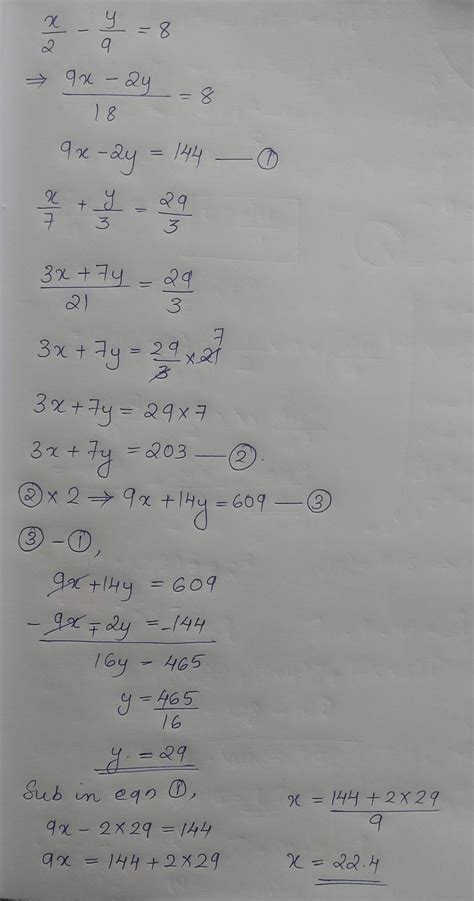 x/2 - y/9 = 8
⇒ (9x - 2y)/18 = 8
9x - 2y = 144 — ①
x/7 + y/3 = 29/3
(3x + 7y)/21 = 29/3
3x + 7y = 29/3 × 21 7
3x + 7y = 29 × 7
3x + 7y = 203 — ②.
② × 2 ⇒ 9x + 14y = 609 — ③
③ - ①,
9x + 14y = 609
- 9x ∓ 2y = -144
16y - 465
y = 465/16
y. = 29
Sub in eqn ①,
9x - 2×29 = 144
9x = 144 + 2×29
x = (144 + 2×29)/9
x = 22.4